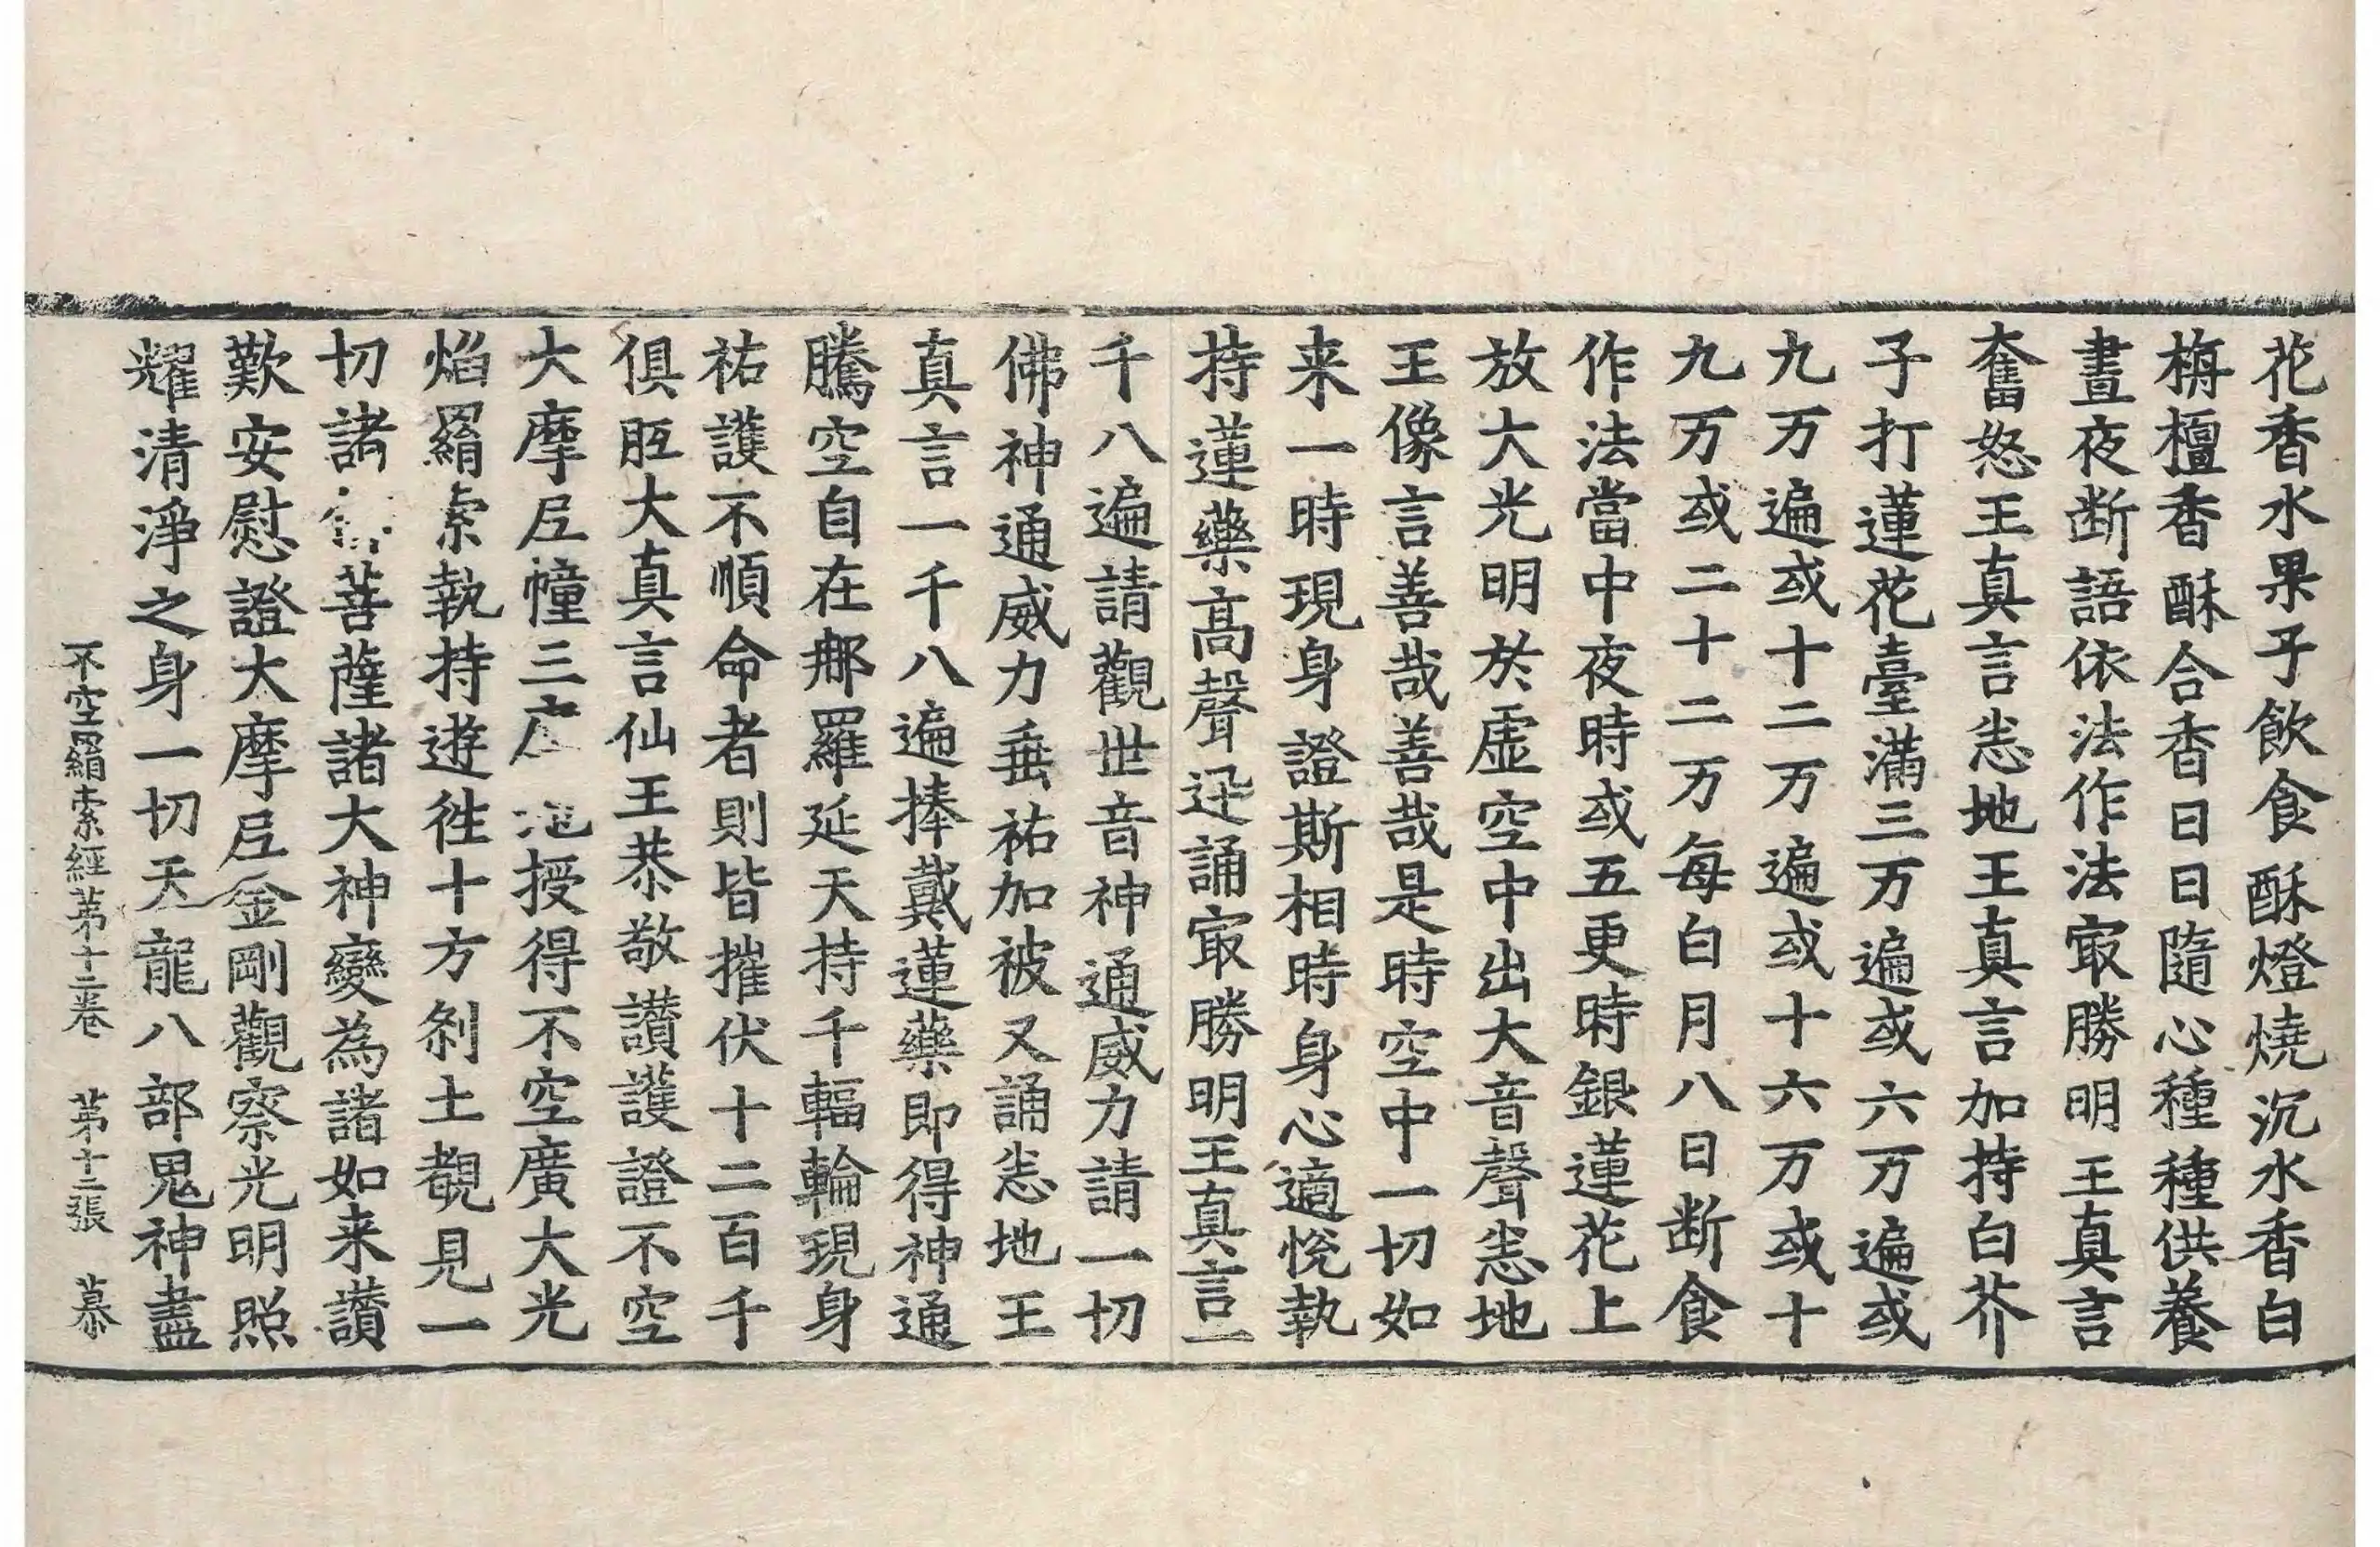 花香水果子飲食酥燈燒沉水香白
栴檀香酥合香日日隨心種種供養
晝夜断語依法作法㝡勝明王真言
奮怒王真言恙地王真言加持白芥
子打蓮花臺滿三万遍或六万遍或
九万遍或十二万遍或十六万或十
九万或二十二万每白月八日断食
作法當中夜時或五更時銀蓮花上
放大光明於虛空中出大音聲恙地
王像言善哉善哉是時空中一切如
来一時現身證斯相時身心適悅執
持蓮藥髙聲迊誦㝡勝明王真言一
千八遍請觀世音神通威力請一切
佛神通威力垂祐加被又誦恙地王
真言一千八遍捧戴蓮藥即得神通
騰空自在郍羅延天持千輻輪現身
祐護不順命者則皆摧伏十二百千
俱胝大真言仙王恭敬讃護證不空
大摩尼幢三授得不空廣大光
焰羂索執持逰徃十方剎土覩見一
切諸菩薩諸大神變為諸如来讃
歎安慰證大摩尼金剛觀察光明照
耀清淨之身一切天龍八部鬼神盡
不空羂索經苐十二卷 苐十二張 慕